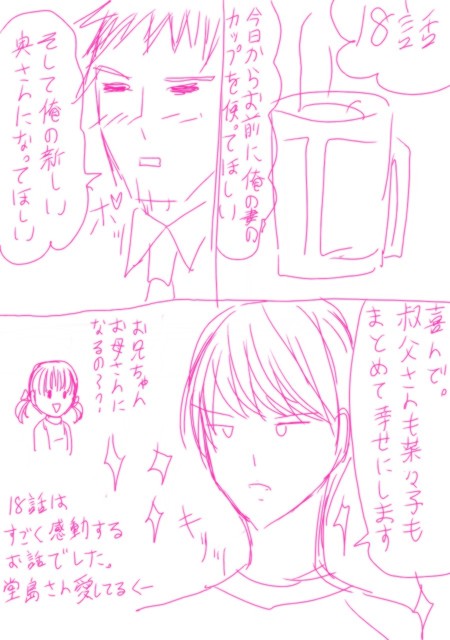 18話
今日からお前に俺の妻の
カップを使ってほしい
そして俺の新しい
奥さんになってほしい
ポッ
喜んで。
叔父さんも菜々子も
まとめて幸せにします
お兄ちゃん
お母さんに
なるの～?
キリッ
18話は
すごく感動する
お話でした。
堂島さん愛してるくー